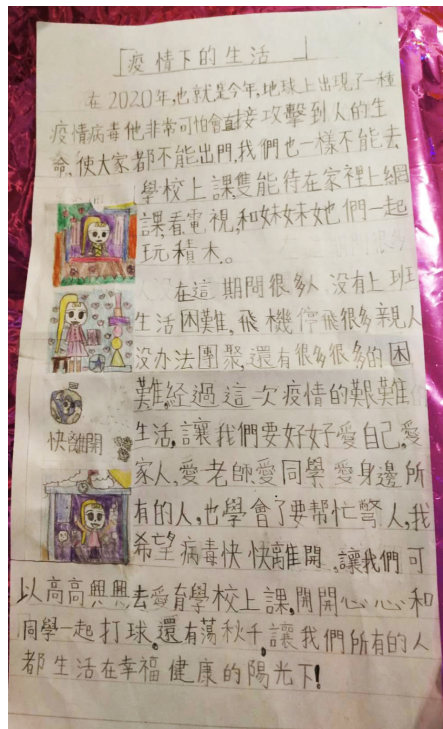 「疫情下的生活」
在2020年,也就是今年,地球上出現了一種
疫情病毒他非常可怕會直接攻擊到人的生
命,使大家都不能出門,我們也一樣不能去
學校上課,雙能待在家裡上網
課,看電視,和妹妹她們一起
玩積木。
在這期間很多人沒有上班
生活困難,飛機停飛很多親人
沒办法團聚,還有很多很多的困
難,經過這一次疫情的艱難
生活,讓我們要好好愛自己,愛
快離開
家人,愛老師,愛同學愛身邊所
有的人,也學會了要帮忙警人,我
希望病毒快快離開,讓我們可
以高高興興去愛育學校上課,開開心心和
同學一起打球,還有蕩秋千,讓我們所有的人
都生活在幸福健康的陽光下!